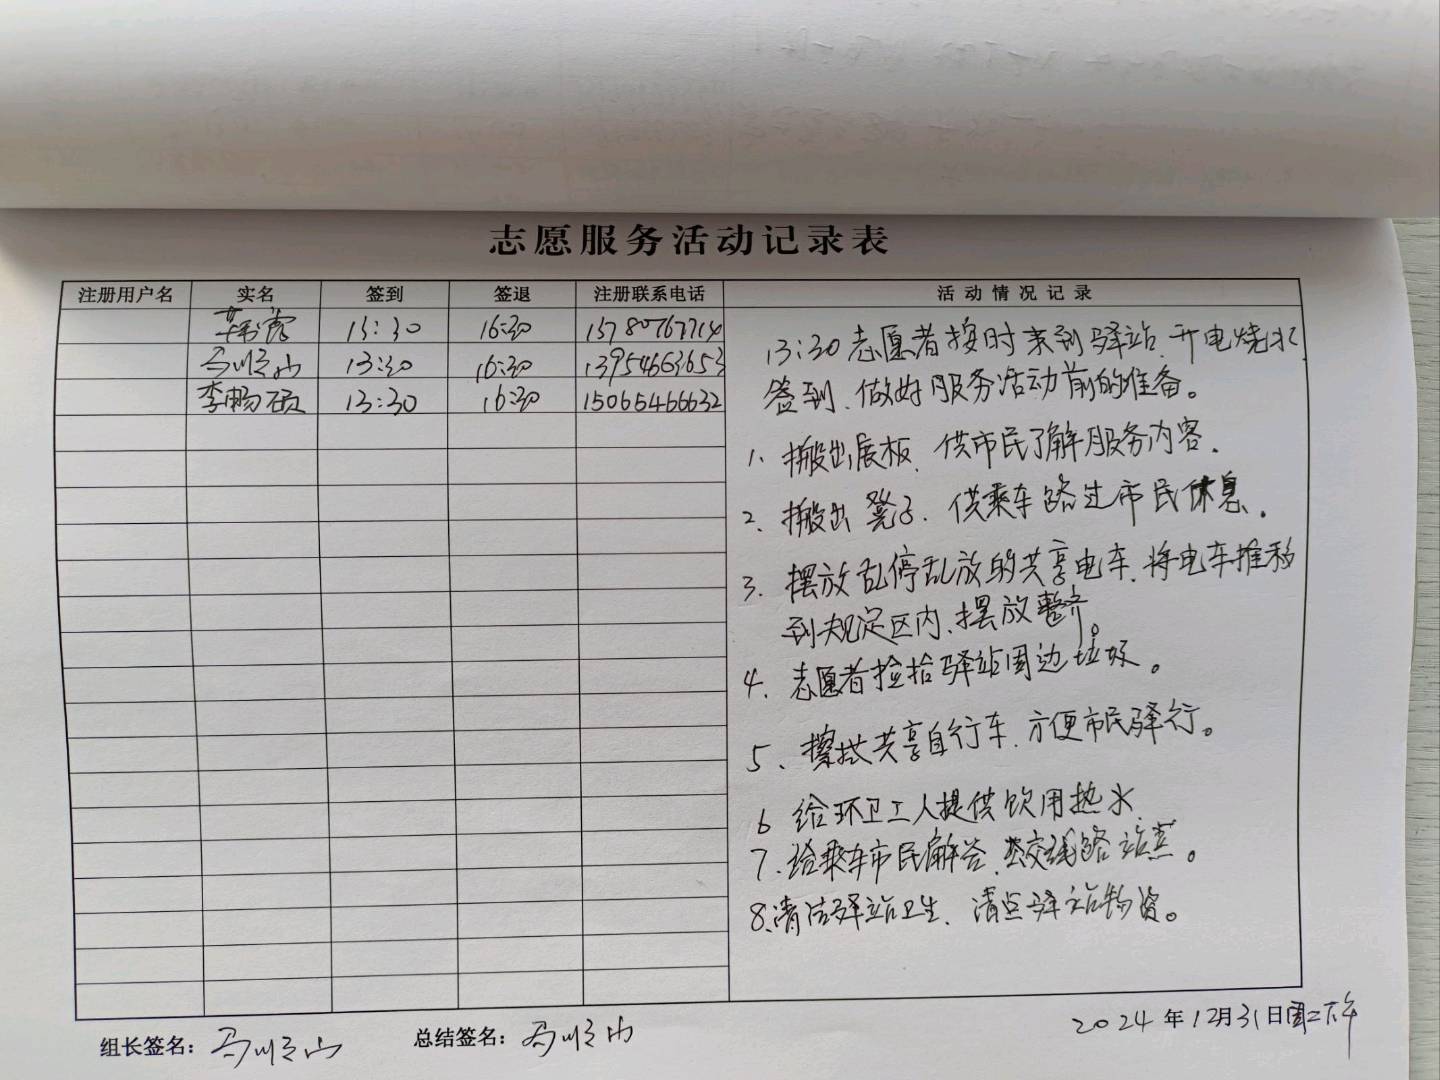 志愿服务活动记录表
注册用户名 实名 签到 签退 注册联系电话 活动情况记录
13:30 16:30 15780767714
马顺山 13:30 16:30 13954663653
李畅硕 13:30 16:30 15065466632
13:30志愿者按时来到驿站、开电烧水、
签到、做好服务活动前的准备。
1、搬出展板、供市民了解服务内容.
2、搬出凳子、供乘车路过市民休息.
3、摆放乱停乱放的共享电车、将电车推移
到规定区内、摆放整齐。
4、志愿者捡拾驿站周边垃圾。
5、擦拭共享自行车、方便市民骑行。
6 给环卫工人提供饮用热水
7.给乘车市民解答、公交线路站点。
8.清洁驿站卫生、清点驿站物资。
组长签名: 马顺山 总结签名: 马顺山
2024年12月31日周二下午